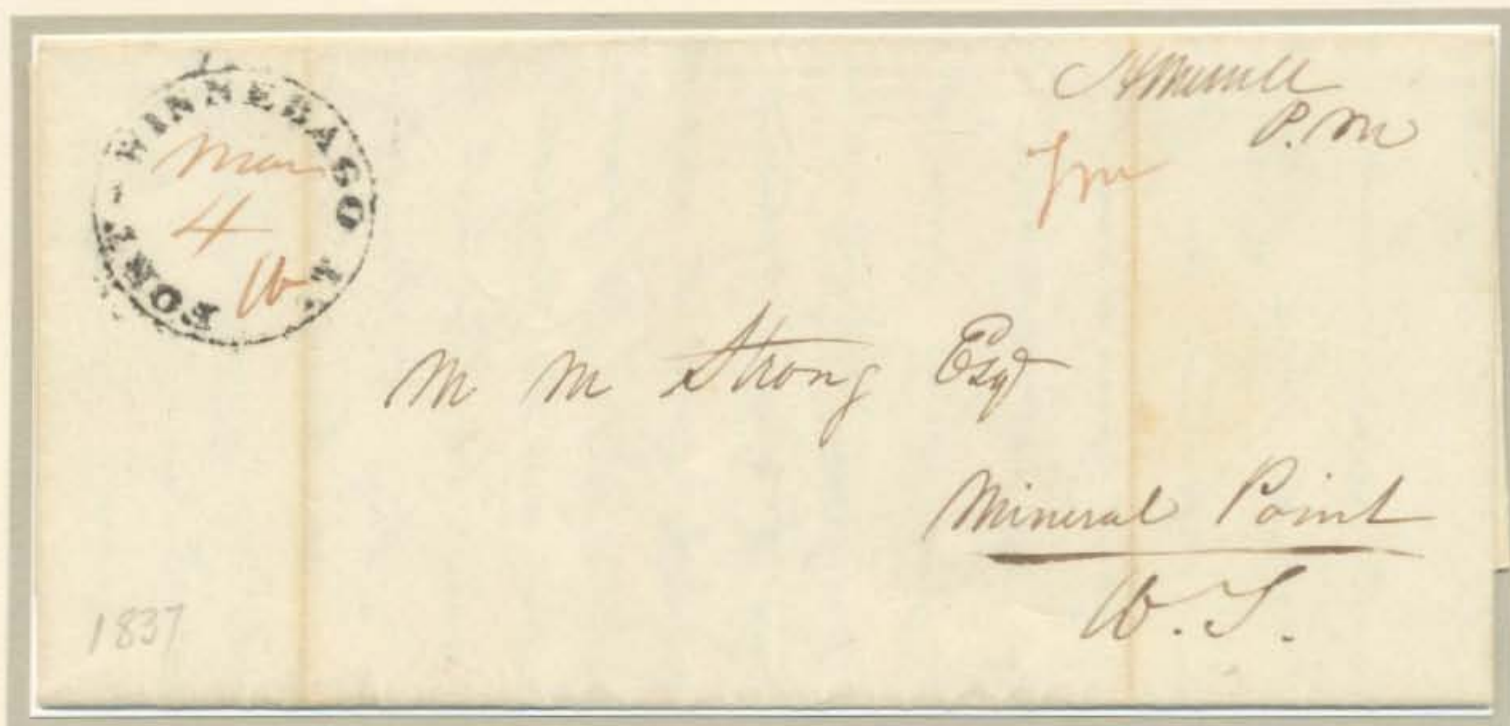 FORT-WINNEBAGO
Mar
4
W
H Merrell
P.M
M M Strong Esqr
Mineral Point
W.T.
1837